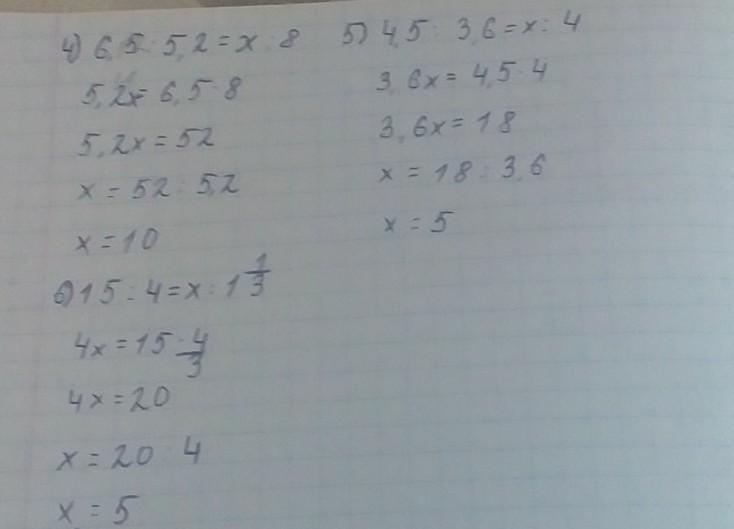 4) 6,5 : 5,2 = x : 8
5,2x = 6,5 · 8
5,2x = 52
x = 52 : 5,2
x = 10
5) 4,5 : 3,6 = x : 4
3,6x = 4,5 · 4
3,6x = 18
x = 18 : 3,6
x = 5
6) 15 : 4 = x : 1 1/3
4x = 15 · 4/3
4x = 20
x = 20 : 4
x = 5